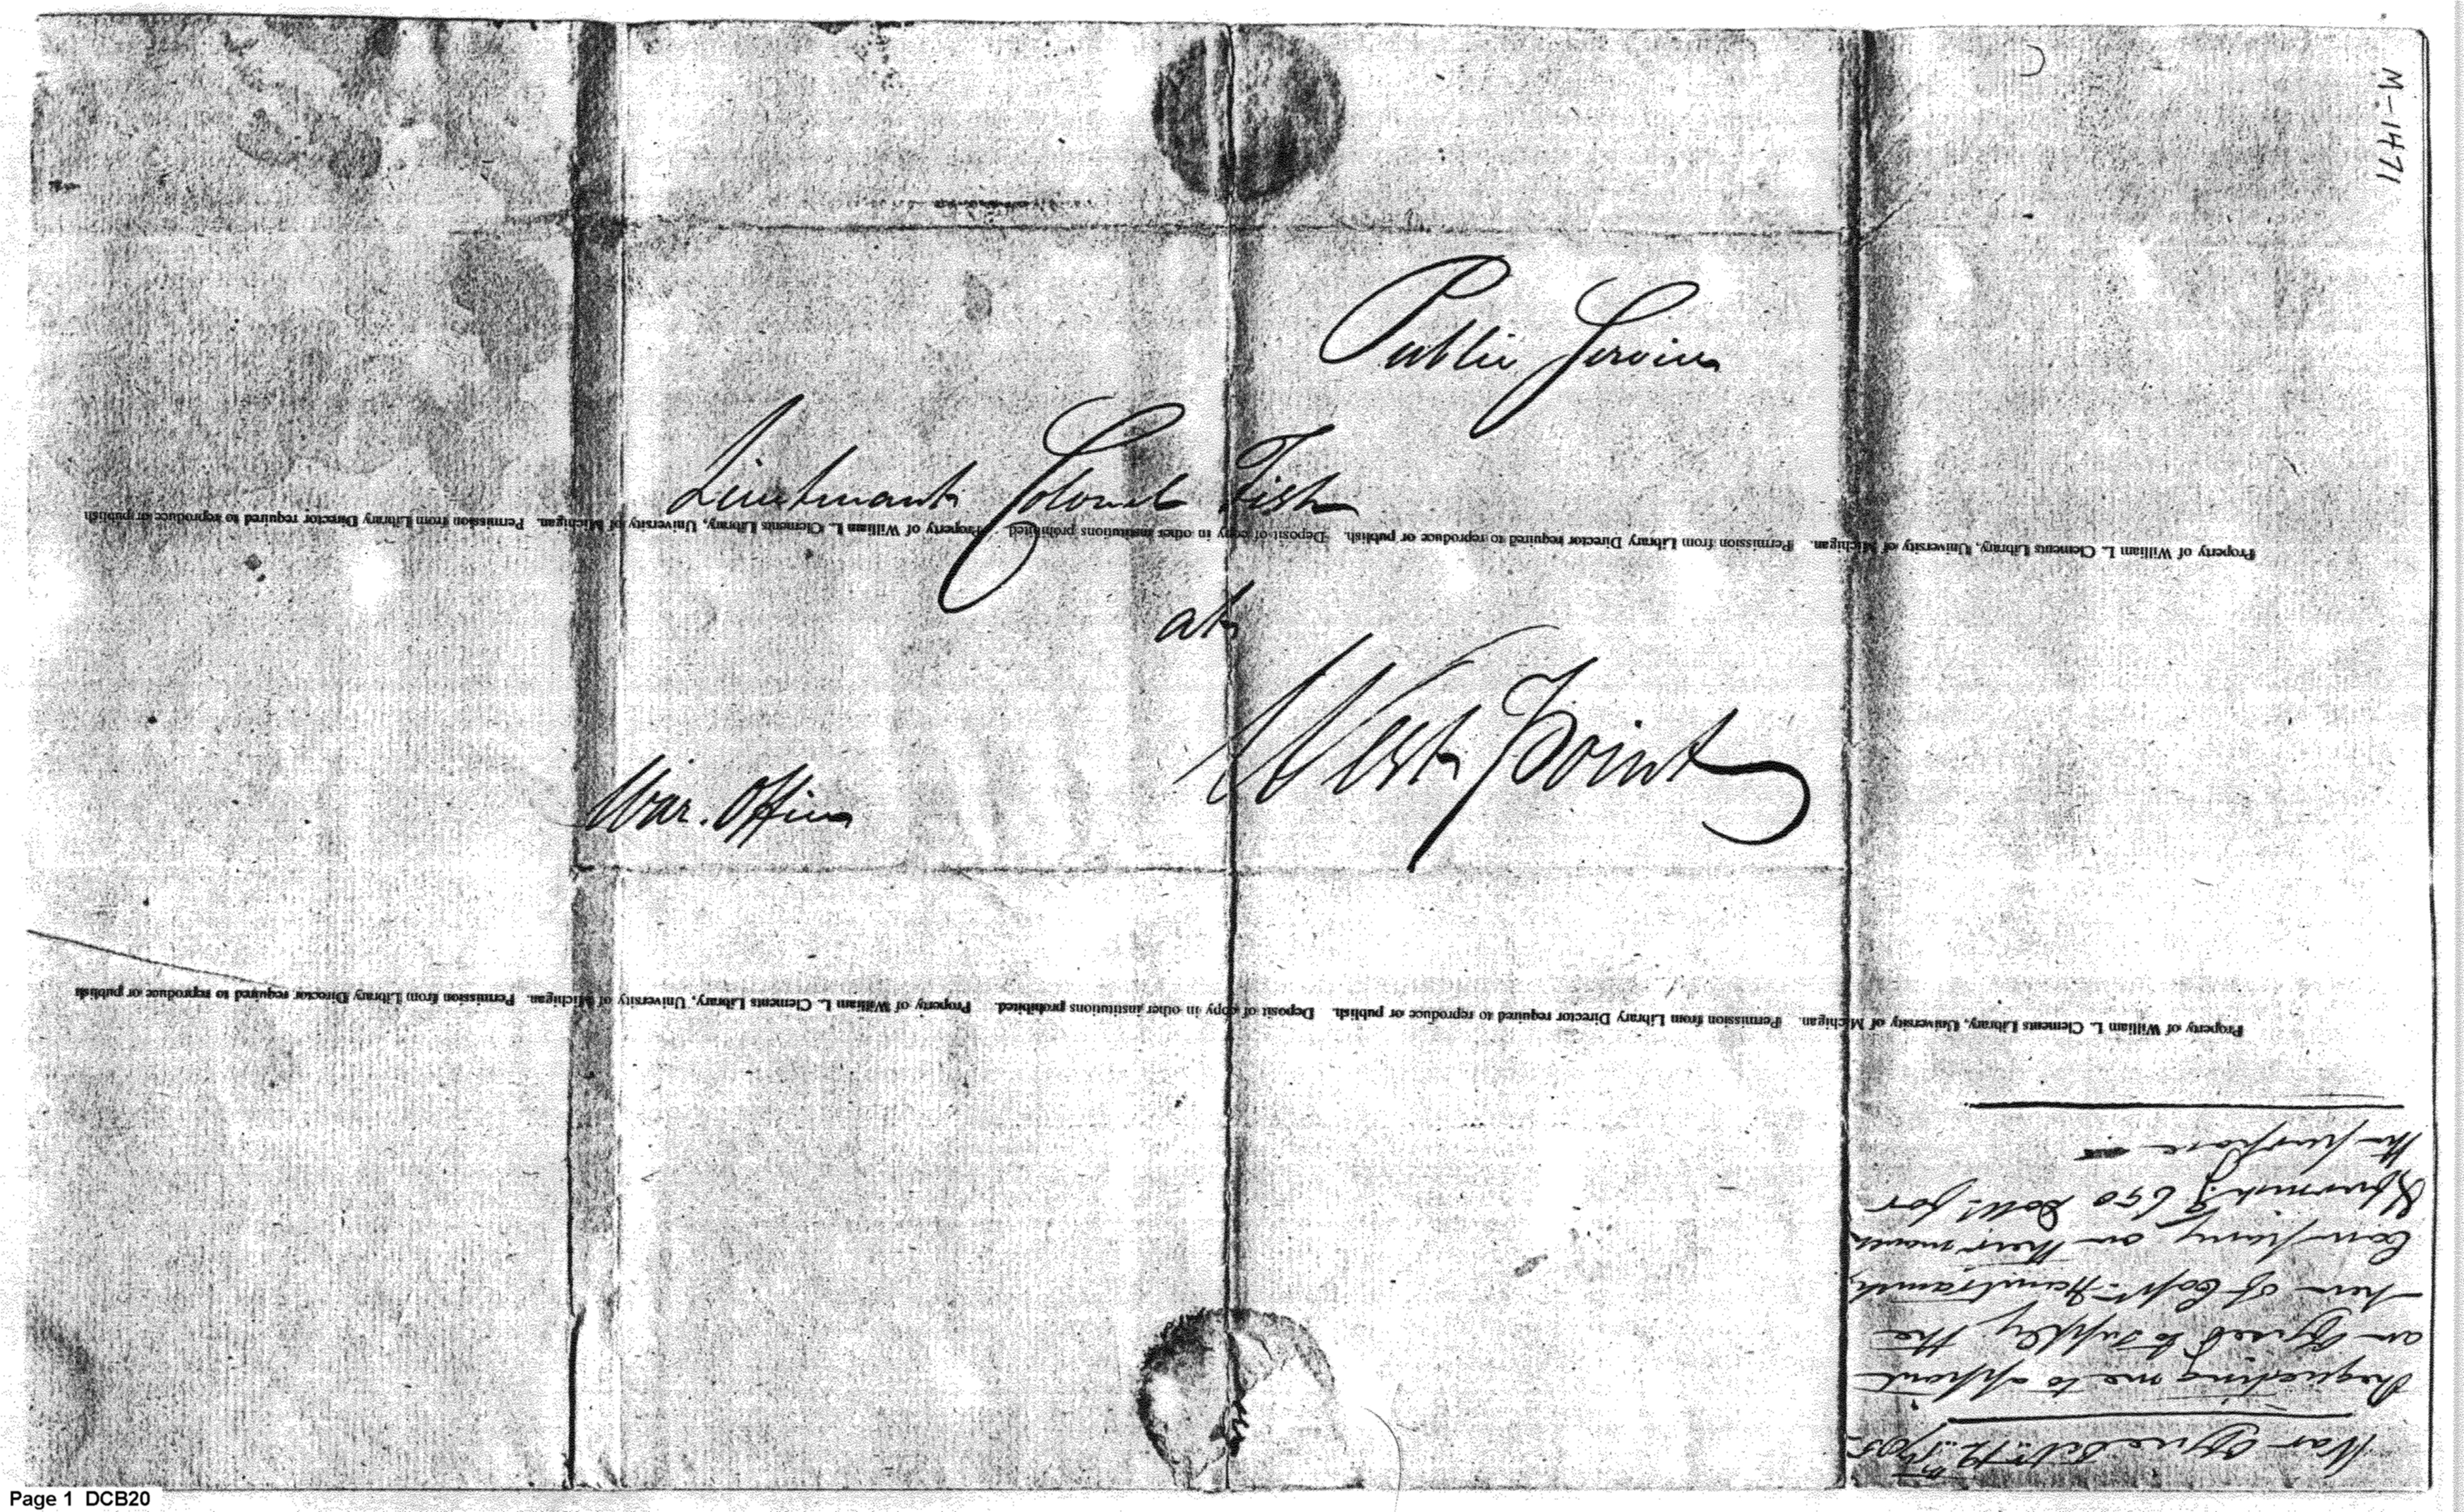 M-1471
Public Service
Lieutenant Colonel Fish
at
West Point
War. Office
Property of William L. Clements Library, University of Michigan. Permission from Library Director required to reproduce or publish. Deposit of copy in other institutions prohibited. Property of William L. Clements Library, University of Michigan. Permission from Library Director required to reproduce or publish
Property of William L. Clements Library, University of Michigan. Permission from Library Director required to reproduce or publish. Deposit of copy in other institutions prohibited. Property of William L. Clements Library, University of Michigan. Permission from Library Director required to reproduce or publish
War Office
Requesting me to appoint
an Officer to supply the
men of Capt. Hamtramck
Company on their march
650 Doll.s for
the purpose
Page 1 DCB20